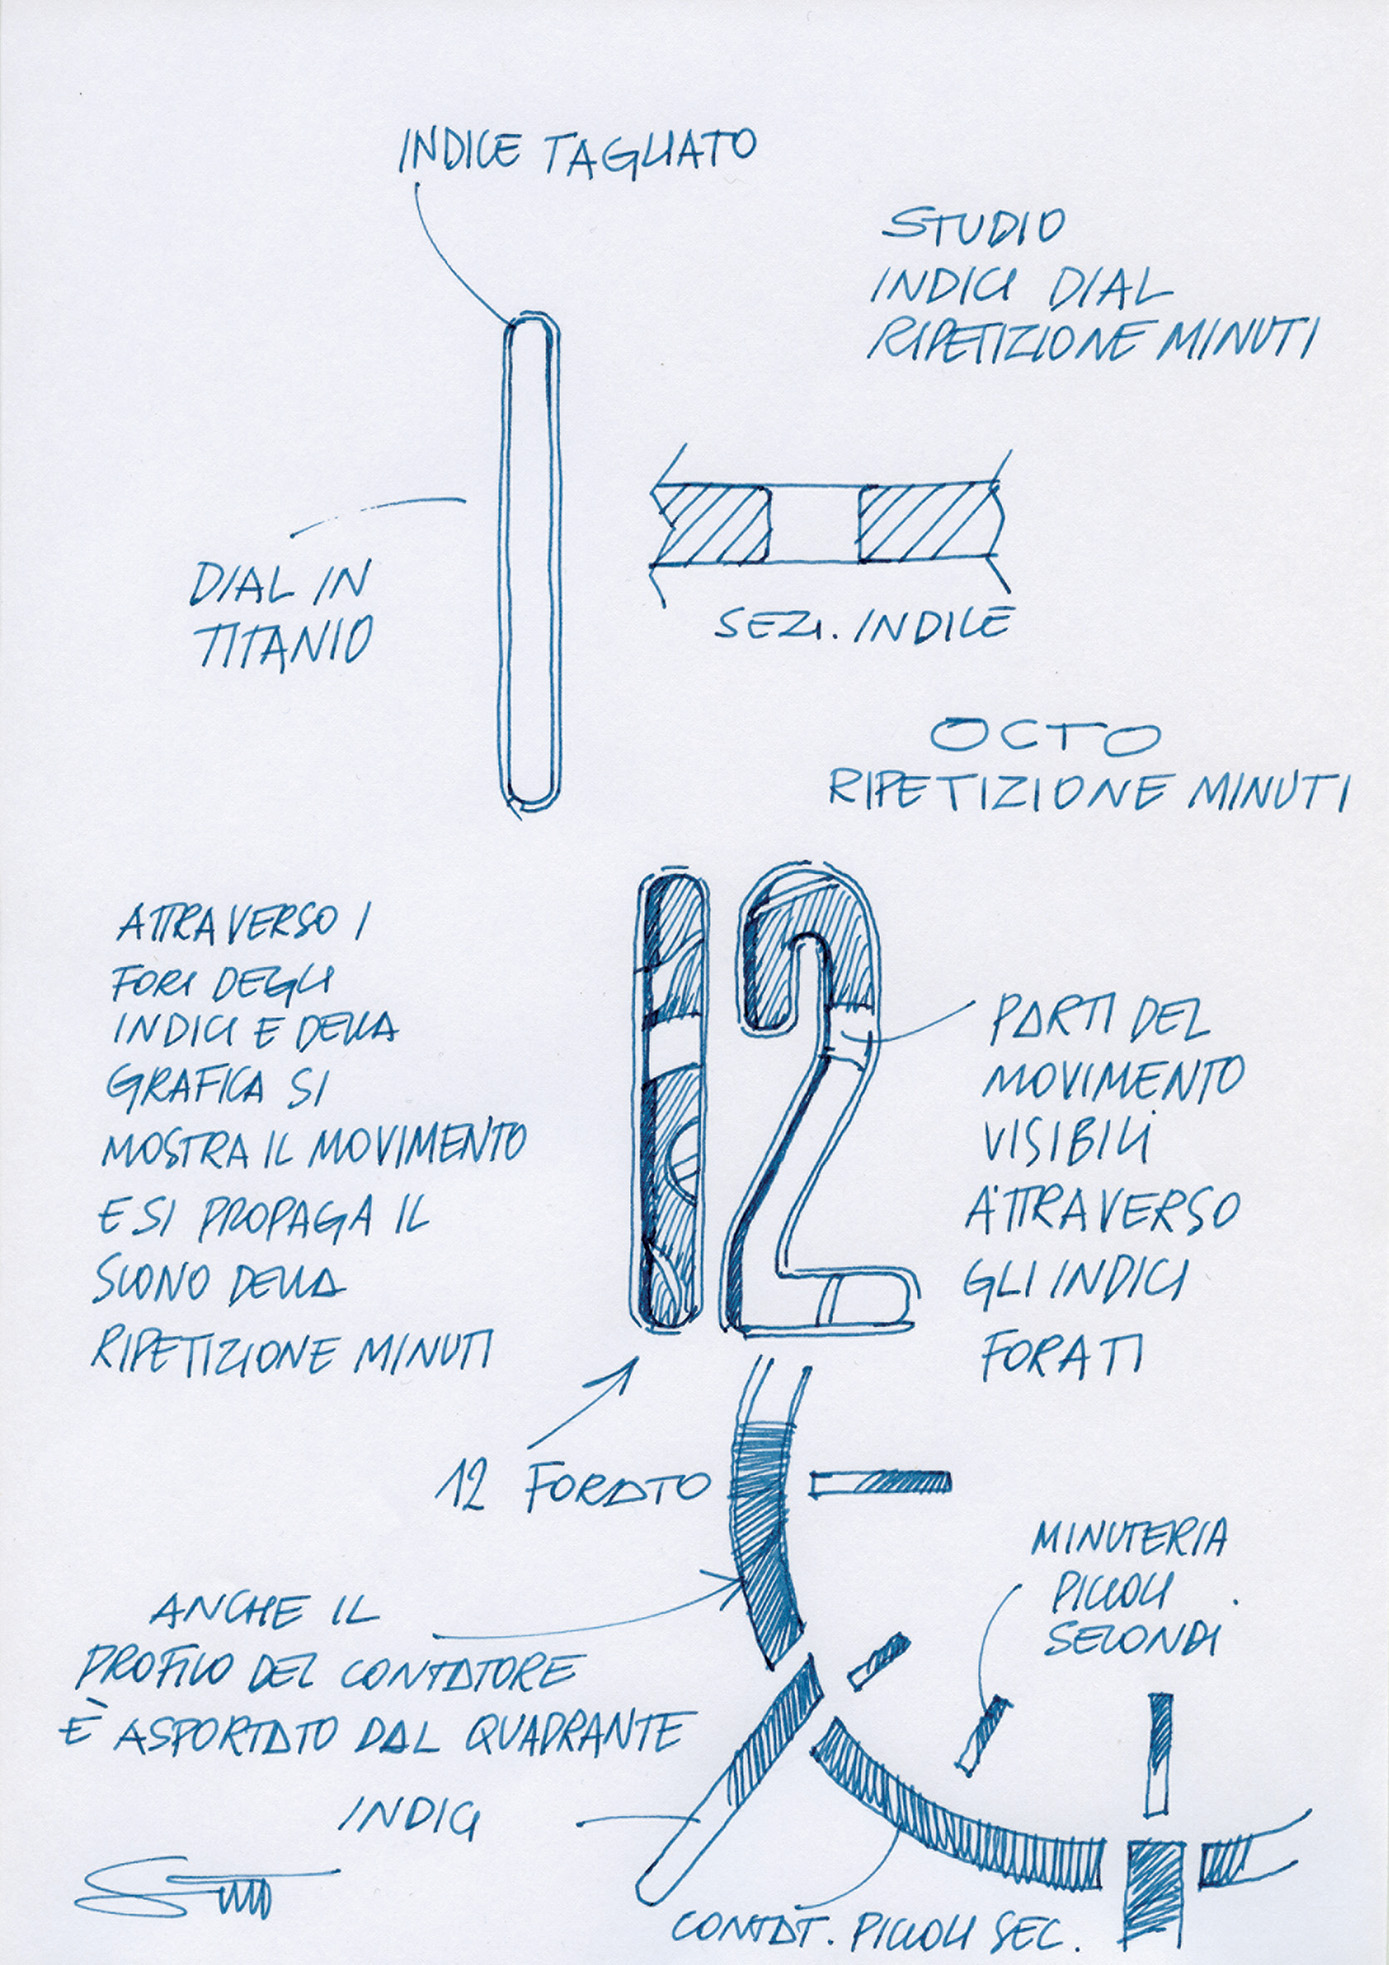 INDICE TAGLIATO
STUDIO
INDICI DIAL
RIPETIZIONE MINUTI
DIAL IN
TITANIO
SEZI. INDICE
OCTO
RIPETIZIONE MINUTI
ATTRAVERSO I
FORI DEGLI
INDICI E DELLA
GRAFICA SI
MOSTRA IL MOVIMENTO
E SI PROPAGA IL
SUONO DELLA
RIPETIZIONE MINUTI
12
PARTI DEL
MOVIMENTO
VISIBILI
ATTRAVERSO
GLI INDICI
FORATI
12 FORATO
MINUTERIA
PICCOLI
SECONDI
ANCHE IL
PROFILO DEL CONTATORE
È ASPORTATO DAL QUADRANTE
INDICI
CONTAT. PICCOLI SEC.